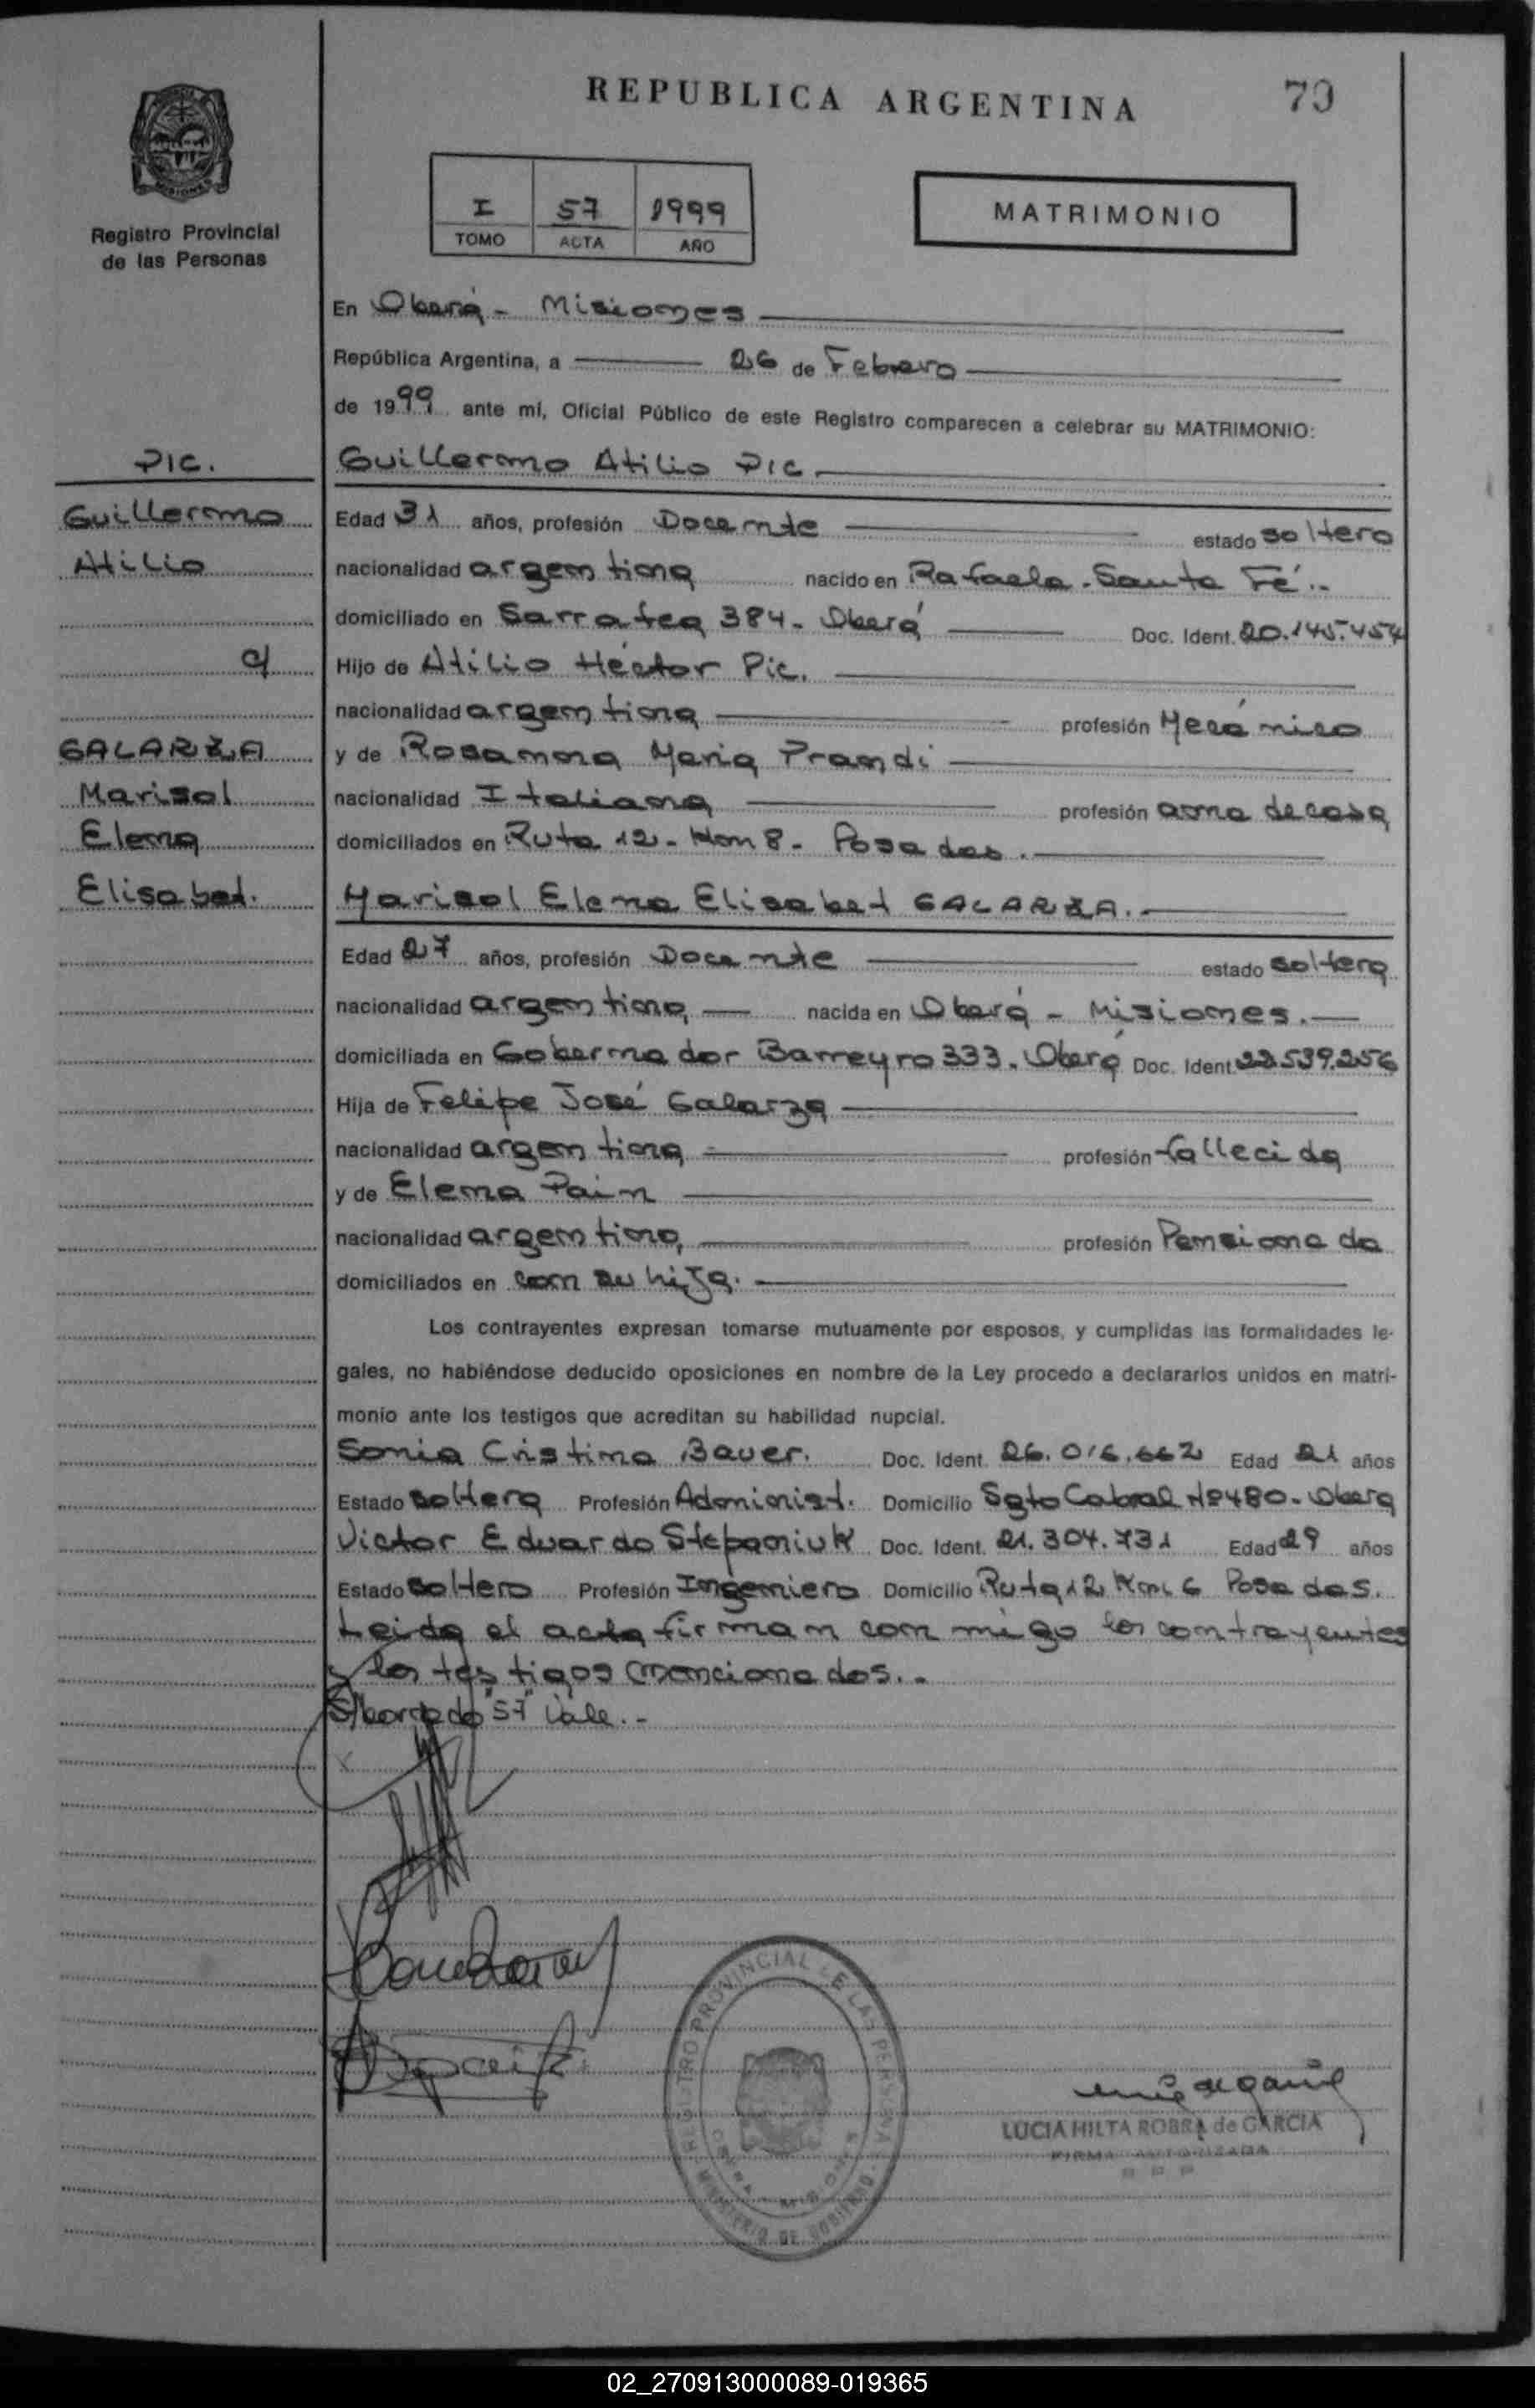 REPUBLICA ARGENTINA
70
MISIONES
Registro Provincial
de las Personas
I 57 1999
TOMO ACTA AÑO
MATRIMONIO
En Oberá - Misiones
República Argentina, a 26 de Febrero
de 1999 ante mí, Oficial Público de este Registro comparecen a celebrar su MATRIMONIO:
PIC.
Guillermo
Atilio
c/
GALARZA
Marisol
Elena
Elisabet.
Guillermo Atilio PIC
Edad 31 años, profesión Docente estado soltero
nacionalidad argentina nacido en Rafaela - Santa Fé.-
domiciliado en Sarratea 384 - Oberá Doc. Ident. 20.145.454
Hijo de Atilio Héctor Pic.
nacionalidad argentina profesión Mecánico
y de Rosanna Maria Prandi
nacionalidad Italiana profesión ama de casa
domiciliados en Ruta 12 - Km 8 - Posadas.
Marisol Elena Elisabet GALARZA.-
Edad 27 años, profesión Docente estado soltera
nacionalidad argentina nacida en Oberá - Misiones.
domiciliada en Gobernador Barreyro 333. Oberá Doc. Ident 22.539.256
Hija de Felipe José Galarza
nacionalidad argentina profesión fallecida
y de Elena Pain
nacionalidad argentina profesión Pensionada
domiciliados en con su hija.
Los contrayentes expresan tomarse mutuamente por esposos, y cumplidas las formalidades le-
gales, no habiéndose deducido oposiciones en nombre de la Ley procedo a declararlos unidos en matri-
monio ante los testigos que acreditan su habilidad nupcial.
Sonia Cristina Bauer. Doc. Ident. 26.016.662 Edad 21 años
Estado soltera Profesión Administ. Domicilio Sgto Cabral Nº 480 - Oberá
Victor Eduardo Stepaniuk Doc. Ident. 21.304.731 Edad 29 años
Estado soltero Profesión Ingeniero Domicilio Ruta 12 Km 6 Posadas.
Leida el acta firman con migo los contrayentes
y los testigos mencionados.-
S/borrado "57" Vale.-
REGISTRO PROVINCIAL DE LAS PERSONAS
OBERA - MISIONES
MINISTERIO DE GOBIERNO
LUCIA HILTA ROBRA de GARCIA
FIRMA AUTORIZADA
R P P
02_270913000089-019365